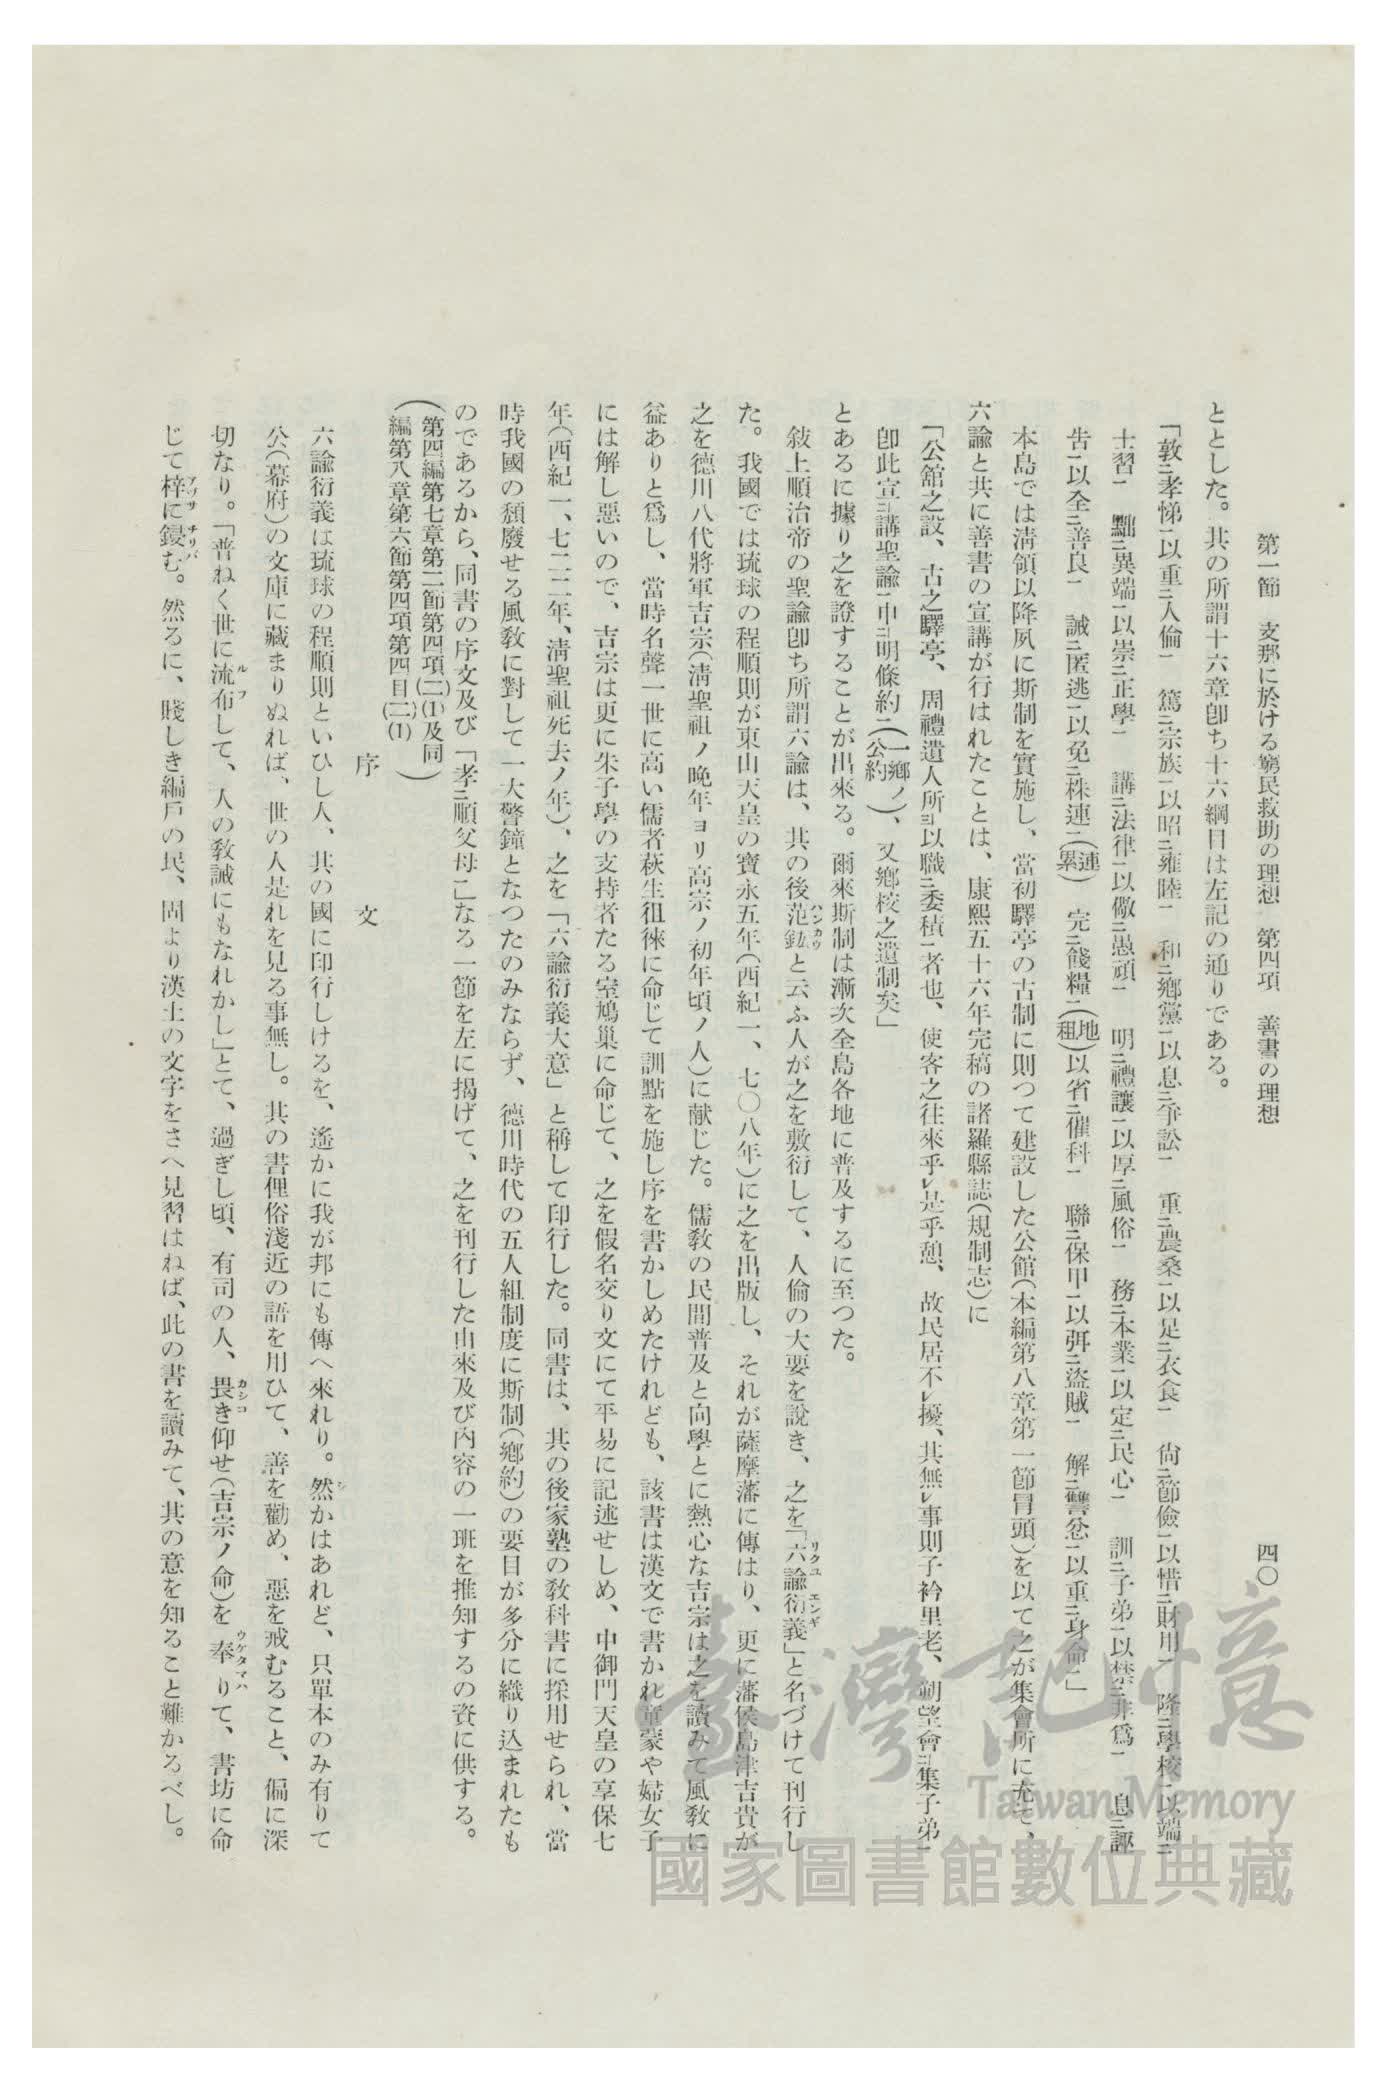 第一節　支那に於ける窮民救助の理想　第四項　善書の理想　四〇
ととした。其の所謂十六章卽ち十六綱目は左記の通りである。
「敦㆓孝悌㆒以重㆓人倫㆒　篤㆓宗族㆒以昭㆓雍睦㆒　和㆓鄕黨㆒以息㆓爭訟㆒　重㆓農桑㆒以足㆓衣食㆒　尙㆓節儉㆒以惜㆓財用㆒　隆㆓學校㆒以端㆓
士習㆒　黜㆓異端㆒以崇㆓正學㆒　講㆓法律㆒以儆㆓愚頑㆒　明㆓禮讓㆒以厚㆓風俗㆒　務㆓本業㆒以定㆓民心㆒　訓㆓子弟㆒以禁㆓非爲㆒　息㆓誣
吿㆒以全㆓善良㆒　誡㆓匿逃㆒以免㆓株連㆒(連累)　完㆓餞糧㆒(地租)以省㆓催科㆒　聯㆓保甲㆒以弭㆓盜賊㆒　解㆓讐忿㆒以重㆓身命㆒」
本島では淸領以降夙に斯制を實施し、當初驛亭の古制に則つて建設した公館(本編第八章第一節冒頭)を以て之が集會所に充て、
六諭と共に善書の宣講が行はれたことは、康熙五十六年完稿の諸羅縣誌(規制志)に
「公舘之設、古之驛亭、周禮遺人所㆘以職㆓委積㆒者也、使客之往來乎㆑是乎憩、故民居不㆑擾、其無㆑事則子衿里老、朔望會㆓集子弟㆒
卽此宣㆓講聖諭㆒申㆓明條約㆒(一鄕ノ公約)、又鄕校之遺制矣」
とあるに據り之を證することが出來る。爾來斯制は漸次全島各地に普及するに至つた。
敍上順治帝の聖諭卽ち所謂六諭は、其の後范鋐と云ふ人が之を敷衍して、人倫の大要を說き、之を「六諭衍義」と名づけて刊行し
た。我國では琉球の程順則が東山天皇の寶永五年(西紀一、七〇八年)に之を出版し、それが薩摩藩に傳はり、更に藩侯島津吉貴が
之を德川八代將軍吉宗(淸聖祖ノ晩年ヨリ高宗ノ初年頃ノ人)に献じた。儒敎の民間普及と向學とに熱心な吉宗は之を讀みて風敎に
益ありと爲し、當時名聲一世に高い儒者萩生徂徠に命じて訓點を施し序を書かしめたけれども、該書は漢文で書かれ童蒙や婦女子
には解し惡いので、吉宗は更に朱子學の支持者たる室鳩巢に命じて、之を假名交り文にて平易に記述せしめ、中御門天皇の享保七
年(西紀一、七二二年、淸聖祖死去ノ年)、之を「六諭衍義大意」と稱して印行した。同書は、其の後家塾の敎科書に採用せられ、當
時我國の頽廢せる風敎に對して一大警鐘となつたのみならず、德川時代の五人組制度に斯制(鄕約)の要目が多分に織り込まれたも
のであるから、同書の序文及び「孝㆓順父母㆒」なる一節を左に揭げて、之を刊行した由來及び內容の一班を推知するの資に供する。
(第四編第七章第二節第四項(二)(1)及同
編第八章第六節第四項第四目(二)(1))
序　文
六諭衍義は琉球の程順則といひし人、其の國に印行しけるを、遙かに我が邦にも傳へ來れり。然かはあれど、只單本のみ有りて
公(幕府)の文庫に藏まりぬれば、世の人是れを見る事無し。其の書俚俗淺近の語を用ひて、善を勸め、惡を戒むること、偏に深
切なり。「普ねく世に流布して、人の敎誡にもなれかし」とて、過ぎし頃、有司の人、畏き仰せ(吉宗ノ命)を奉りて、書坊に命
じて梓に鏤む。然るに、賤しき編戶の民、固より漢土の文字をさへ見習はねば、此の書を讀みて、其の意を知ること難かるべし。
臺灣記憶
Taiwan Memory
國家圖書館數位典藏